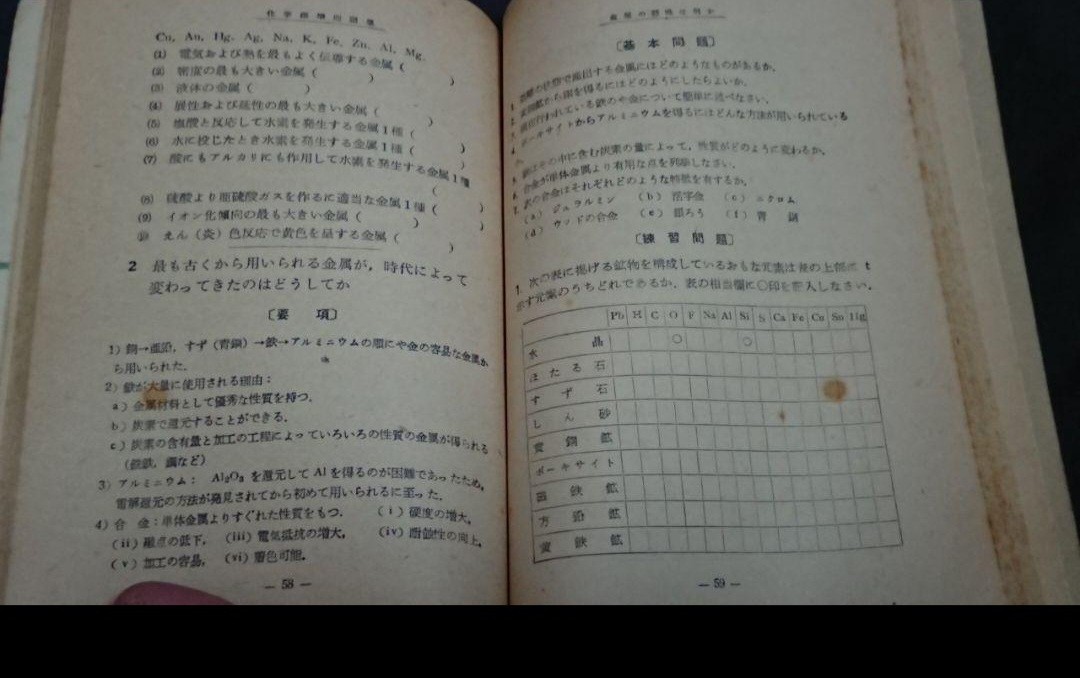 Cu, Au, Hg, Ag, Na, K, Fe, Zn, Al, Mg.
(1) 電気および熱を最もよく伝導する金属( )
(2) 密度の最も大きい金属( )
(3) 液体の金属( )
(4) 展性および延性の最も大きい金属( )
(5) 塩酸と反応して水素を発生する金属1種( )
(6) 水に投じたとき水素を発生する金属1種( )
(7) 酸にもアルカリにも作用して水素を発生する金属1種
( )
(8) 硫酸より亜硫酸ガスを作るに適当な金属1種( )
(9) イオン化傾向の最も大きい金属( )
(10) えん(炎)色反応で黄色を呈する金属( )
2 最も古くから用いられる金属が,時代によって
変わってきたのはどうしてか
〔要 項〕
1) 銅→亜鉛,すず(青銅)→鉄→アルミニウムの順にや金の容易な金属か
ら用いられた.
2) 鉄が大量に使用される理由:
a) 金属材料として優秀な性質を持つ.
b) 炭素で還元することができる.
c) 炭素の含有量と加工の工程によっていろいろの性質の金属が得られる
(銑鉄,鋼など)
3) アルミニウム: Al₂O₃ を還元して Al を得るのが困難であったため,
電解還元の方法が発見されてから初めて用いられるに至った.
4) 合 金:単体金属よりすぐれた性質をもつ. (i) 硬度の増大,
(ii) 融点の低下, (iii) 電気抵抗の増大, (iv) 耐蝕性の向上,
(v) 加工の容易, (vi) 着色可能.
— 58 —
〔基本問題〕
の状態で産出する金属にはどのようなものがあるか.
から銅を得るにはどのようにしたらよいか.
行われている鉄のや金について簡単に述べなさい.
ボーキサイトからアルミニウムを得るにはどんな方法が用いられている
か.
はその中に含む炭素の量によって,性質がどのように変わるか.
合金が単体金属より有用な点を列挙しなさい.
次の合金はそれぞれどのような特徴を有するか.
(a) ジュラルミン (b) 活字金 (c) ニクロム
(d) ウッドの合金 (e) 銀ろう (f) 青 銅
〔練習問題〕
1. 次の表に掲げる鉱物を構成しているおもな元素は表の上部に
示す元素のうちどれであるか.表の相当欄に○印を記入しなさい.
Pb H C O F Na Al Si S Ca Fe Cu Sn Hg
水 晶 ○ ○
ほたる石
すず石
しん砂
黄銅鉱
ボーキサイト
磁鉄鉱
方鉛鉱
黄鉄鉱
— 59 —